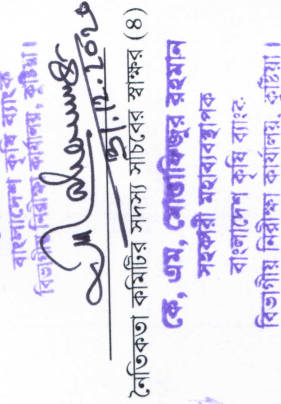 বাংলাদেশ কৃষি ব্যাংক
বিভাগীয় নিরীক্ষা কার্যালয়, কুষ্টিয়া।
৩১.১২.২০২০
নৈতিকতা কমিটির সদস্য সচিবের স্বাক্ষর (৪)
কে, এম, মোস্তাফিজুর রহমান
সহকারী মহাব্যবস্থাপক
বাংলাদেশ কৃষি ব্যাংক
বিভাগীয় নিরীক্ষা কার্যালয়, কুষ্টিয়া।